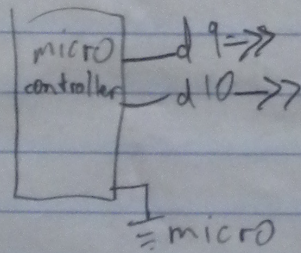 micro
controller
d9
d10
micro